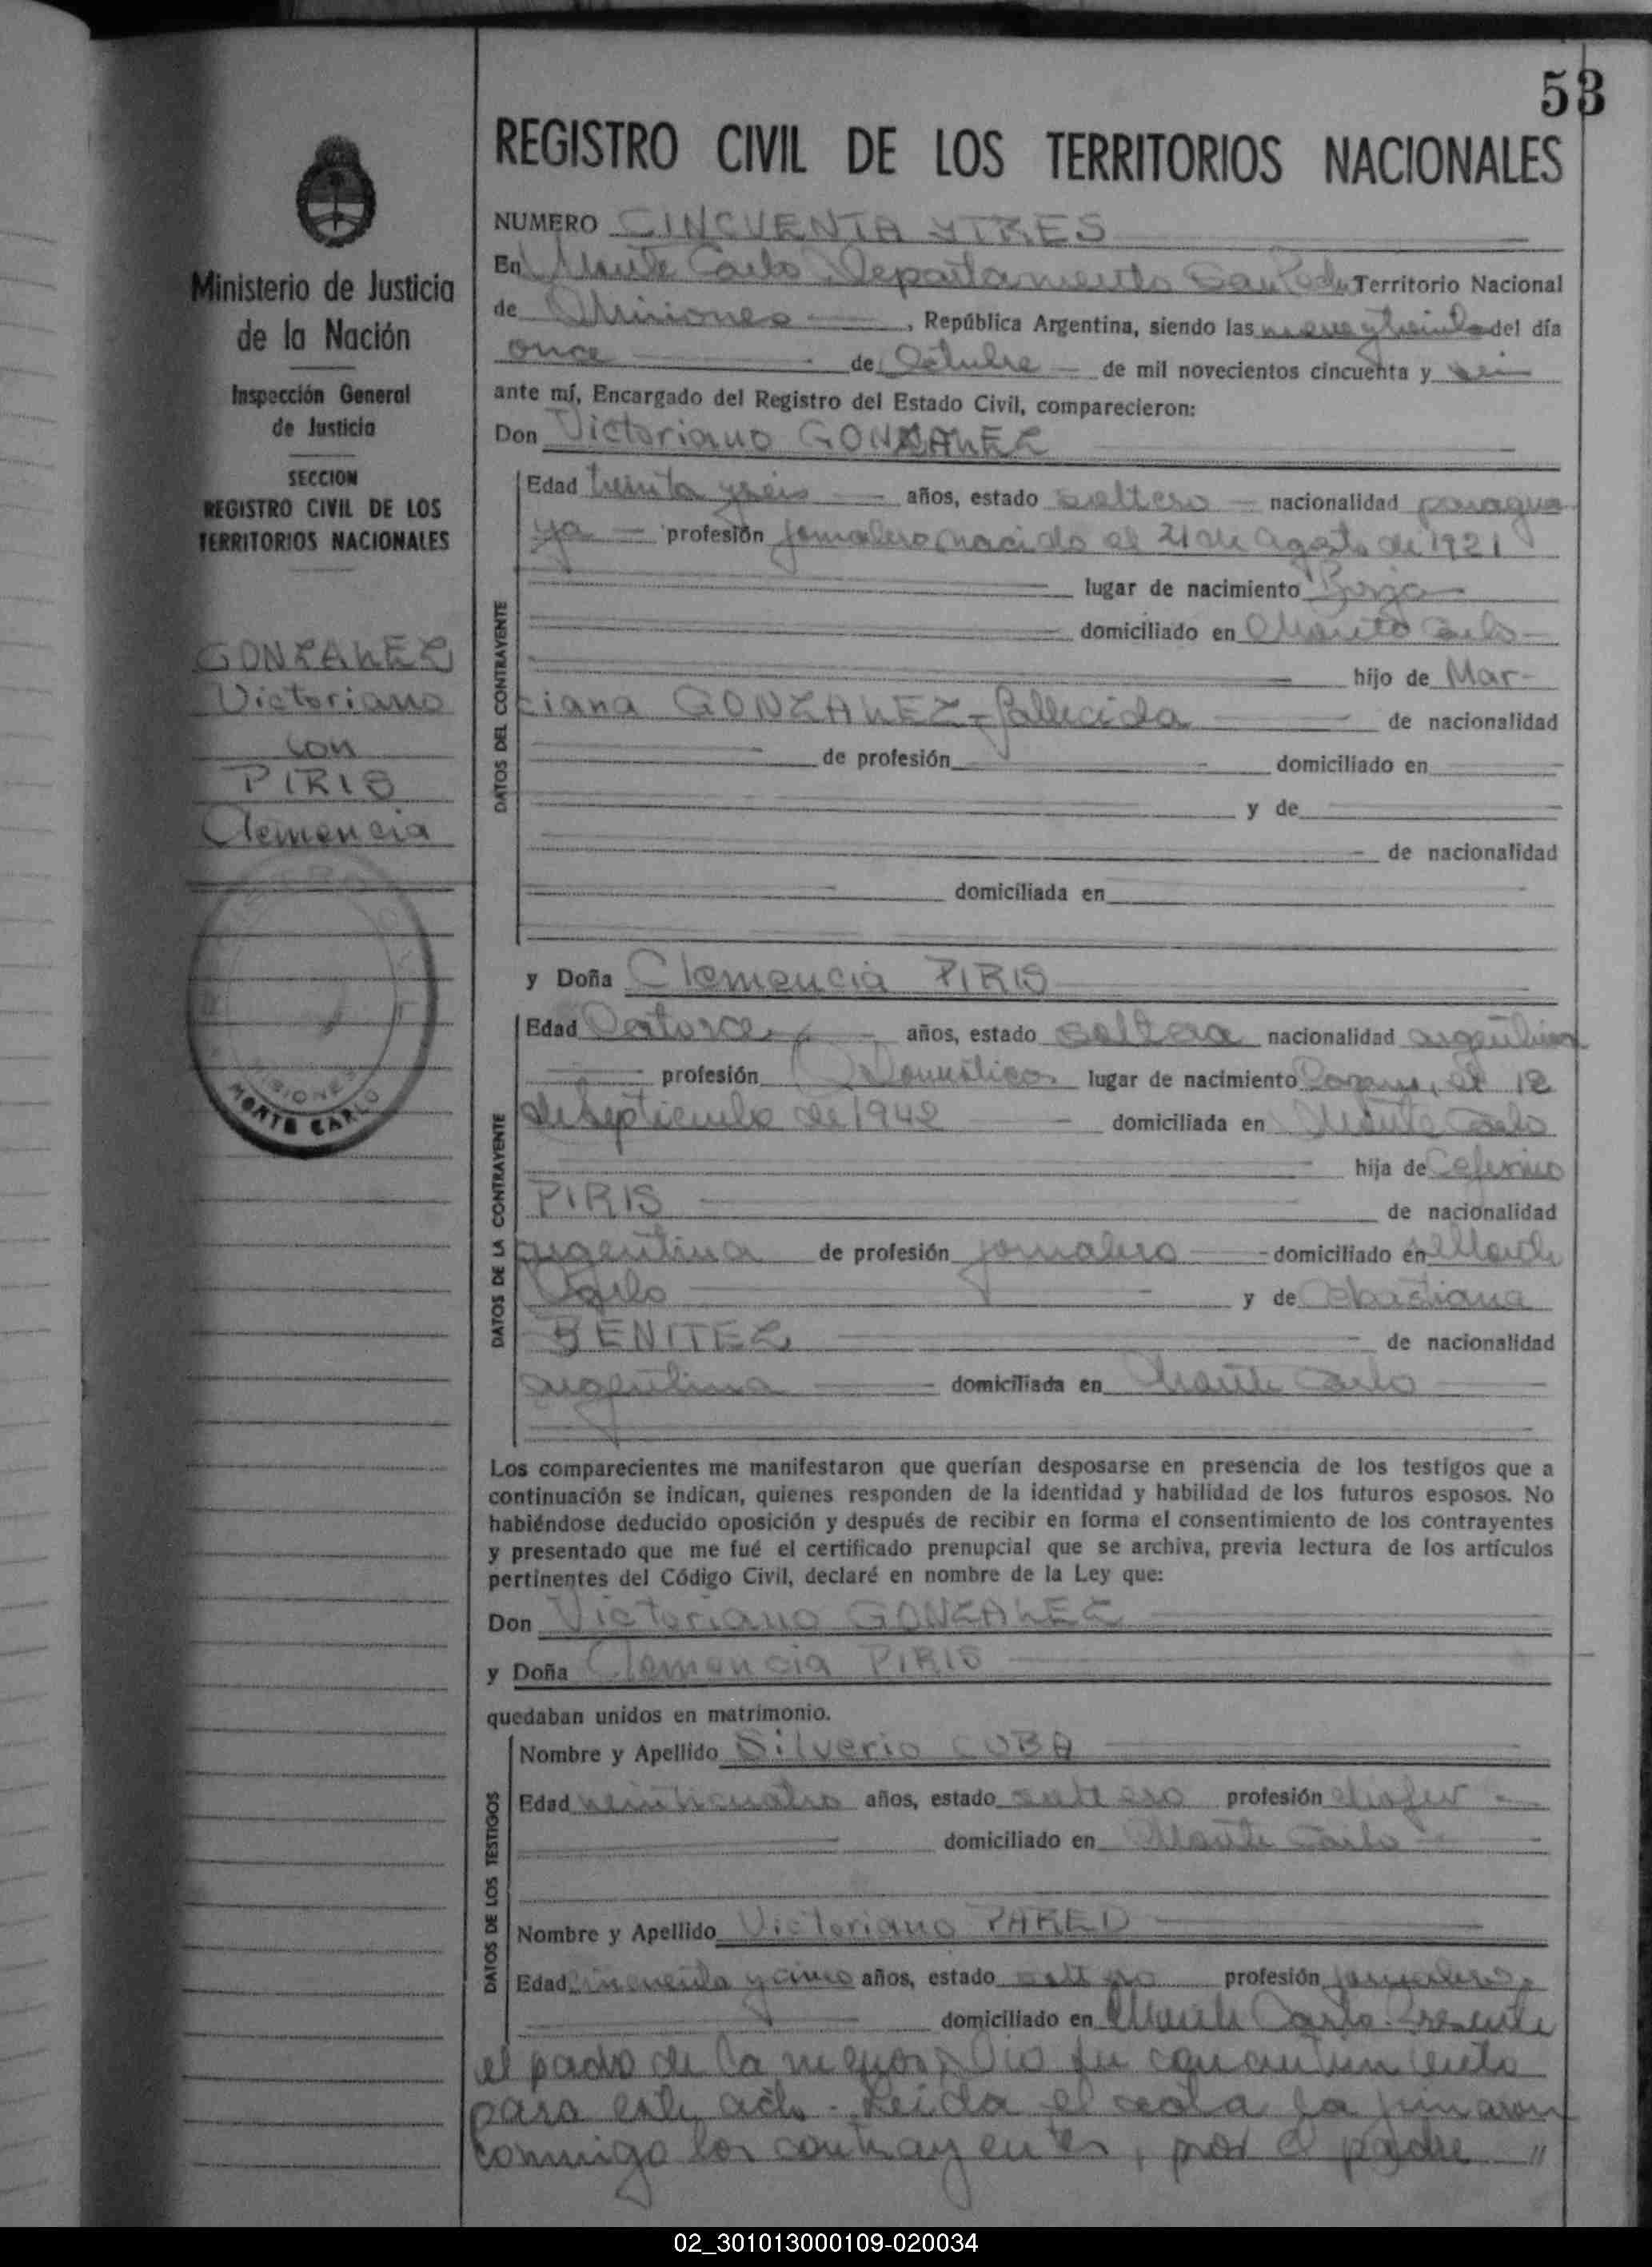 53
REGISTRO CIVIL DE LOS TERRITORIOS NACIONALES
Ministerio de Justicia
de la Nación
Inspección General
de Justicia
SECCION
REGISTRO CIVIL DE LOS
TERRITORIOS NACIONALES
GONZALEZ
Victoriano
con
PIRIS
Clemencia
MISIONES
MONTE CARLO
NUMERO CINCUENTA Y TRES
En Monte Carlo, Departamento San Pedro Territorio Nacional
de Misiones, República Argentina, siendo las nueve y treinta del día
once de Octubre de mil novecientos cincuenta y seis
ante mí, Encargado del Registro del Estado Civil, comparecieron:
Don Victoriano GONZALEZ
DATOS DEL CONTRAYENTE
Edad treinta y seis años, estado soltero nacionalidad paragua
ya profesión jornalero nacido el 21 de Agosto de 1921
lugar de nacimiento Borja
domiciliado en Monte Carlo
hijo de Mar-
ciana GONZALEZ - fallecida de nacionalidad
de profesión domiciliado en
y de
de nacionalidad
domiciliada en
y Doña Clemencia PIRIS
DATOS DE LA CONTRAYENTE
Edad Catorce años, estado soltera nacionalidad argentina
profesión Domésticos lugar de nacimiento el 12
de Septiembre de 1942 domiciliada en Monte Carlo
hija de Ceferino
PIRIS de nacionalidad
argentina de profesión jornalero domiciliado en Monte
Carlo y de Sebastiana
BENITEZ de nacionalidad
argentina domiciliada en Monte Carlo
Los comparecientes me manifestaron que querían desposarse en presencia de los testigos que a
continuación se indican, quienes responden de la identidad y habilidad de los futuros esposos. No
habiéndose deducido oposición y después de recibir en forma el consentimiento de los contrayentes
y presentado que me fué el certificado prenupcial que se archiva, previa lectura de los artículos
pertinentes del Código Civil, declaré en nombre de la Ley que:
Don Victoriano GONZALEZ
y Doña Clemencia PIRIS
quedaban unidos en matrimonio.
DATOS DE LOS TESTIGOS
Nombre y Apellido Silverio CUBA
Edad veinticuatro años, estado soltero profesión chofer
domiciliado en Monte Carlo
Nombre y Apellido Victoriano PARED
Edad cincuenta y cinco años, estado soltero profesión jornalero
domiciliado en Monte Carlo. Presente
el padre de la menor, dio su
para este acto. Leida el acta la firmaron
conmigo los contrayentes, por el padre "
02_301013000109-020034